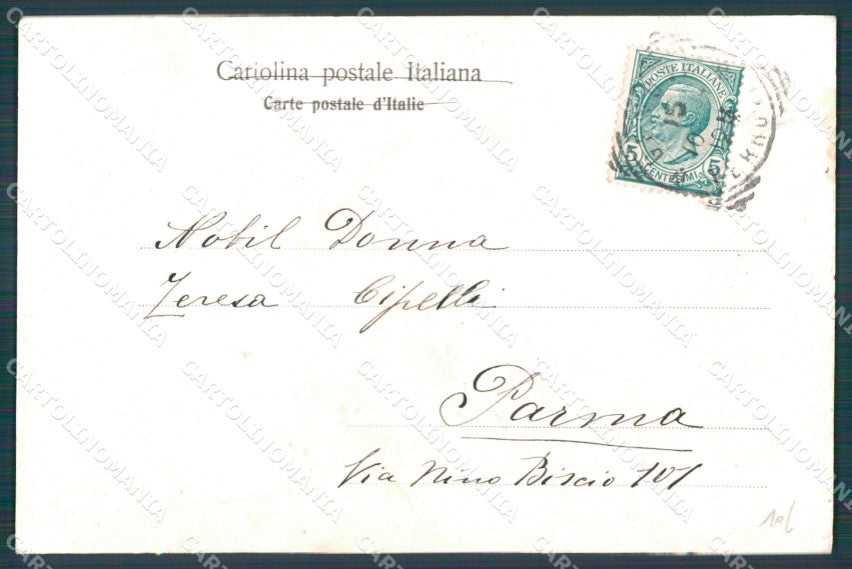 Cartolina postale Italiana
Carte postale d'Italie
POSTE ITALIANE
5 CENTESIMI 5
15
Nobil Donna
Teresa Cipelli
Parma
Via Nino Biscio 101
CARTOLINOMANIA